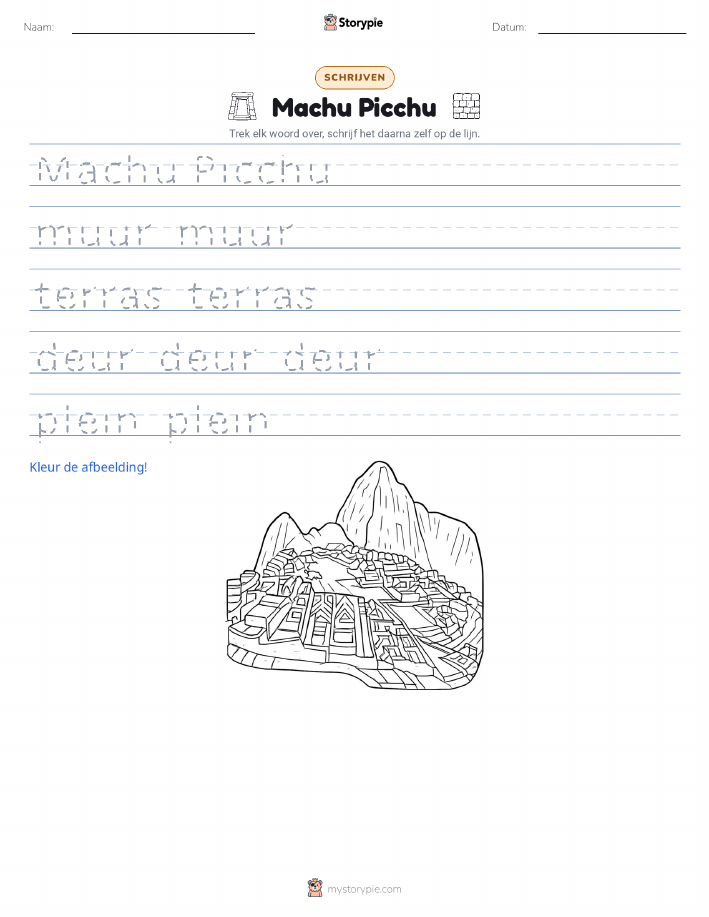 Naam:
Storypie
Datum:
SCHRIJVEN
Machu Picchu
Trek elk woord over, schrijf het daarna zelf op de lijn.
Machu Picchu
muur muur
terras terras
deur deur deur
plein plein
Kleur de afbeelding!
mystorypie.com